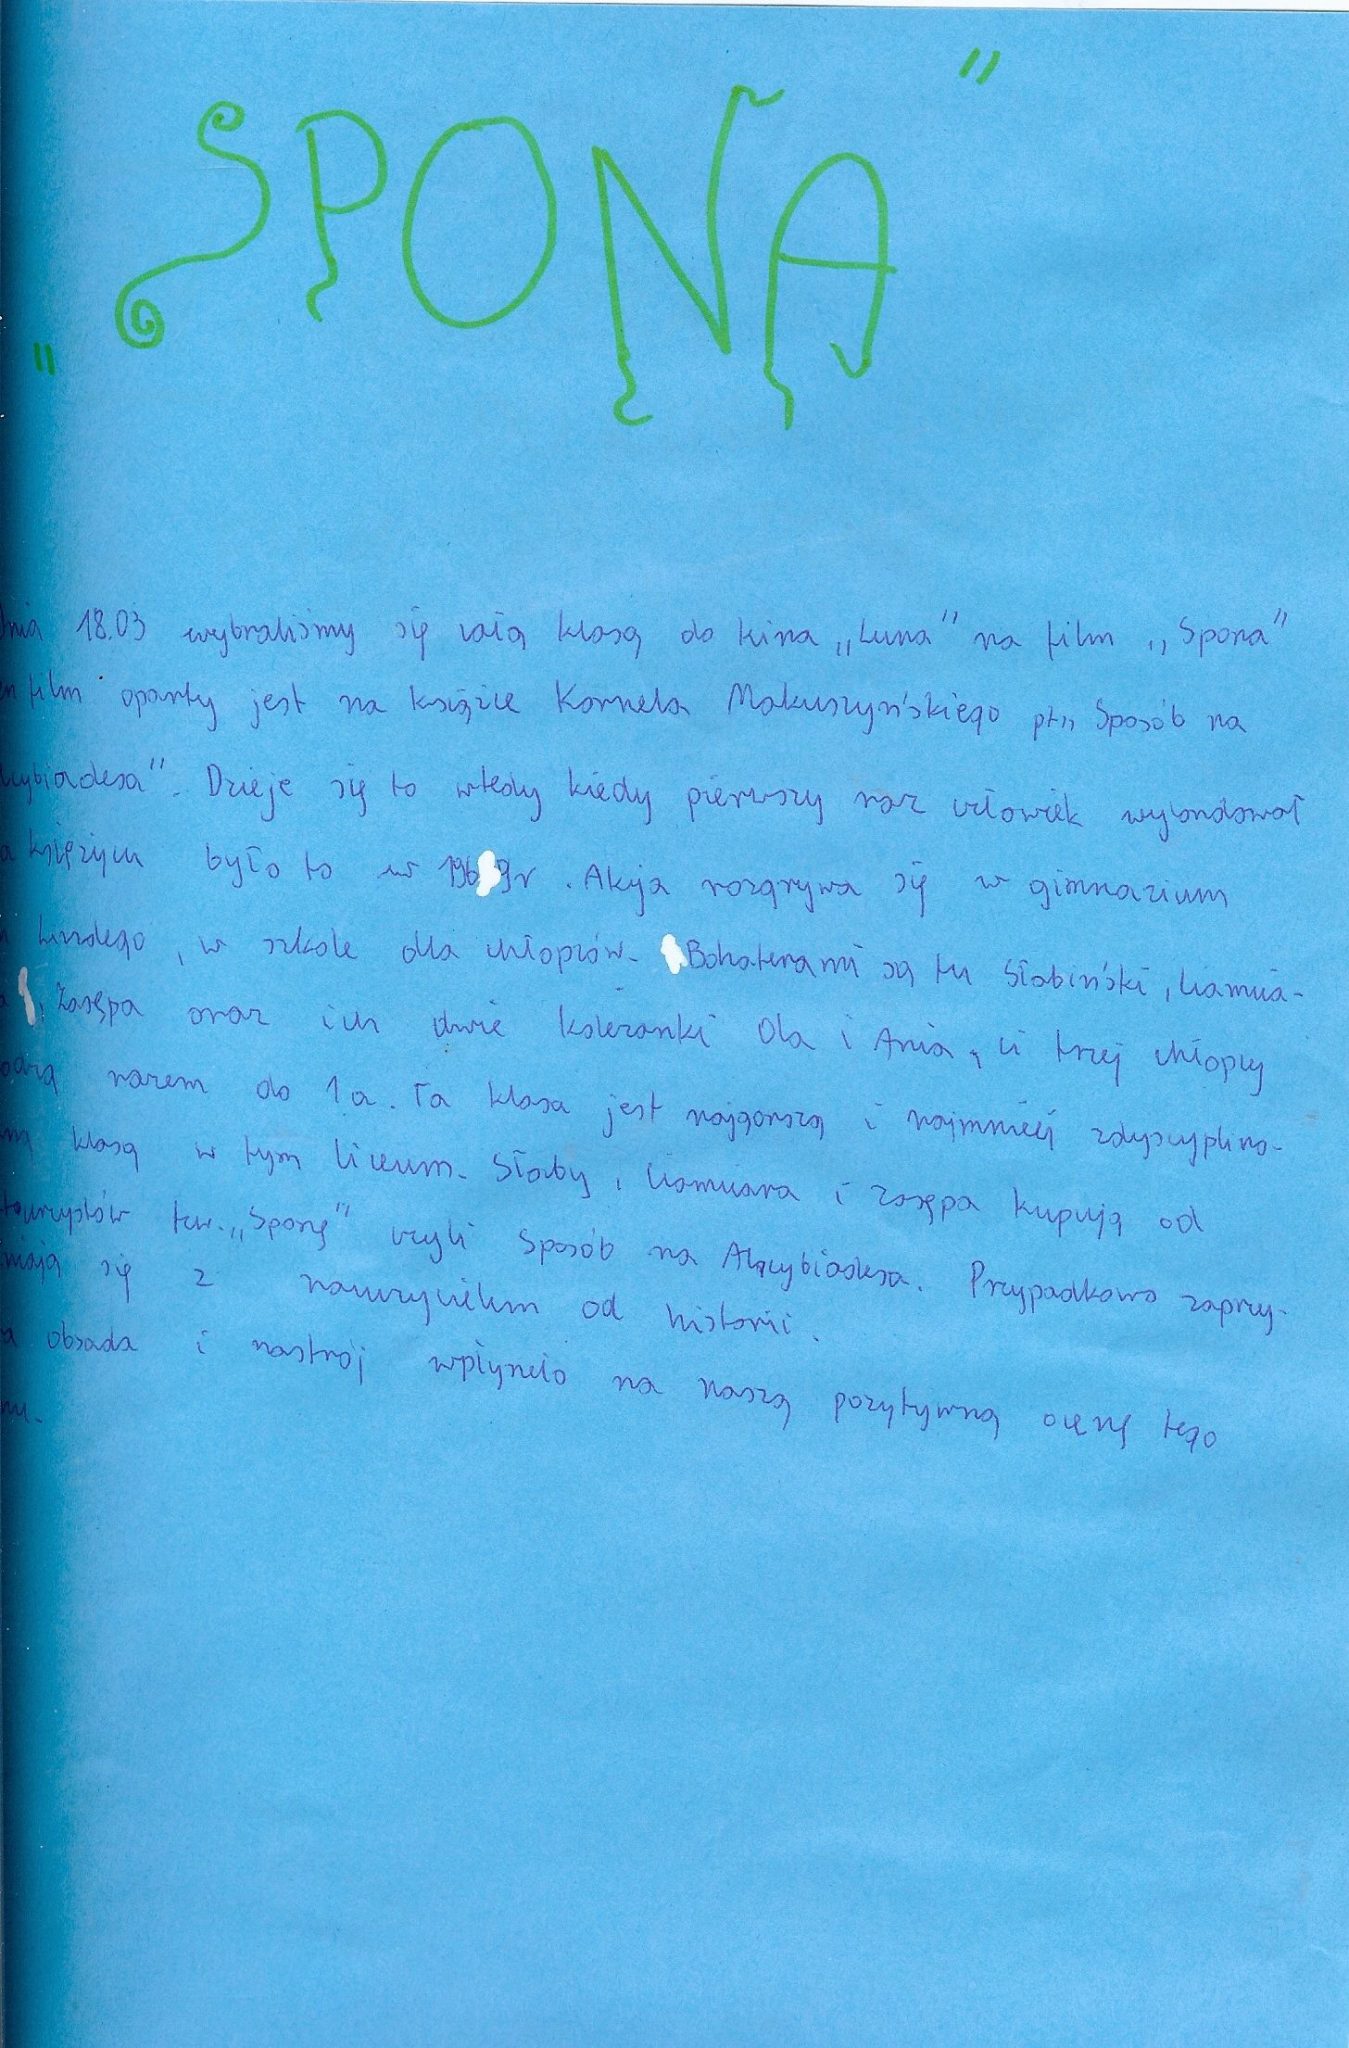 „SPONA"
dnia 18.03 wybraliśmy się całą klasą do kina „Luna" na film „Spona"
film oparty jest na książce Kornela Makuszyńskiego pt„ Sposób na
cybiadesa". Dzieje się to wtedy kiedy pierwszy raz człowiek wylondował
księżycu było to w 1969r. Akcja rozgrywa się w gimnazium
Lindego, w szkole dla chłopców. Bohaterami są tu Słabiński, Ciamcia-
, Zasępa oraz ich dwie koleżanki Ola i Ania, ci trzej chłopcy
odzą razem do 1a. Ta klasa jest najgorszą i najmniej zdyscyplino-
ną klasą w tym liceum. Słaby, Ciamciara i Zasępa kupują od
tzw. „Sponę" czyli Sposób na Alcybiadesa. Przypadkowo zaprzy-
niają się z nauczycielem od historii.
obsada i nastrój wpłyneło na naszą pozytywną ocenę tego